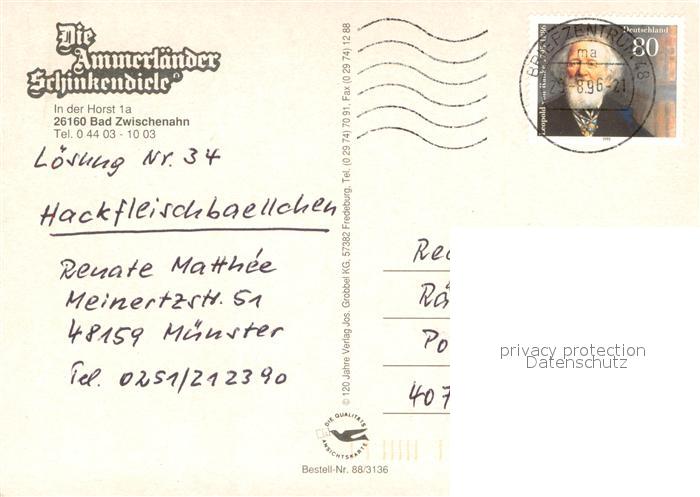 Die
Ammerländer
Schinkendiele
In der Horst 1a
26160 Bad Zwischenahn
Tel. 0 44 03 - 10 03
Lösung Nr. 34
Hackfleischbaellchen
Renate Matthée
Meinertzstr. 51
48159 Münster
Tel. 0251/212390
© 120 Jahre Verlag Jos. Grobbel KG, 57382 Fredeburg, Tel. (0 29 74) 70 91, Fax (0 29 74) 12 88
DIE QUALITÄTS
ANSICHTSKARTE
Bestell-Nr. 88/3136
Deutschland
80
Leopold von Ranke 1795-1886
1995
BRIEFZENTRUM 48
ma
-8.96-21
Rec
Rä
Po
407
privacy protection
Datenschutz